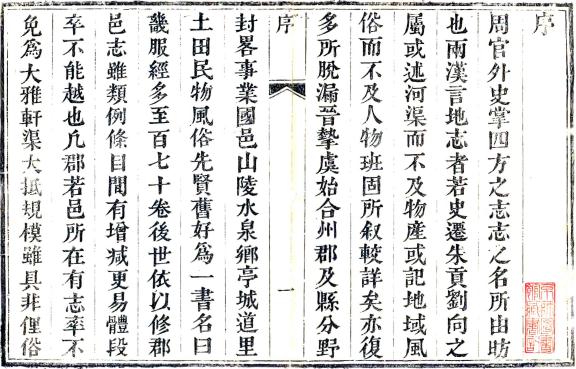 序
周官外史掌四方之志志之名所由昉
也兩漢言地志者若史遷朱貢劉向之
屬或述河渠而不及物產或記地域風
俗而不及人物班固所叙較詳矣亦復
多所脫漏晉摯虞始合州郡及縣分野
序
一
封畧事業國邑山陵水泉鄉亭城道里
土田民物風俗先賢舊好爲一書名曰
畿服經多至百七十卷後世依以修郡
邑志雖類例條目間有增減更易體段
率不能越也凡郡若邑所在有志率不
免爲大雅軒渠大抵規模雖具非俚俗